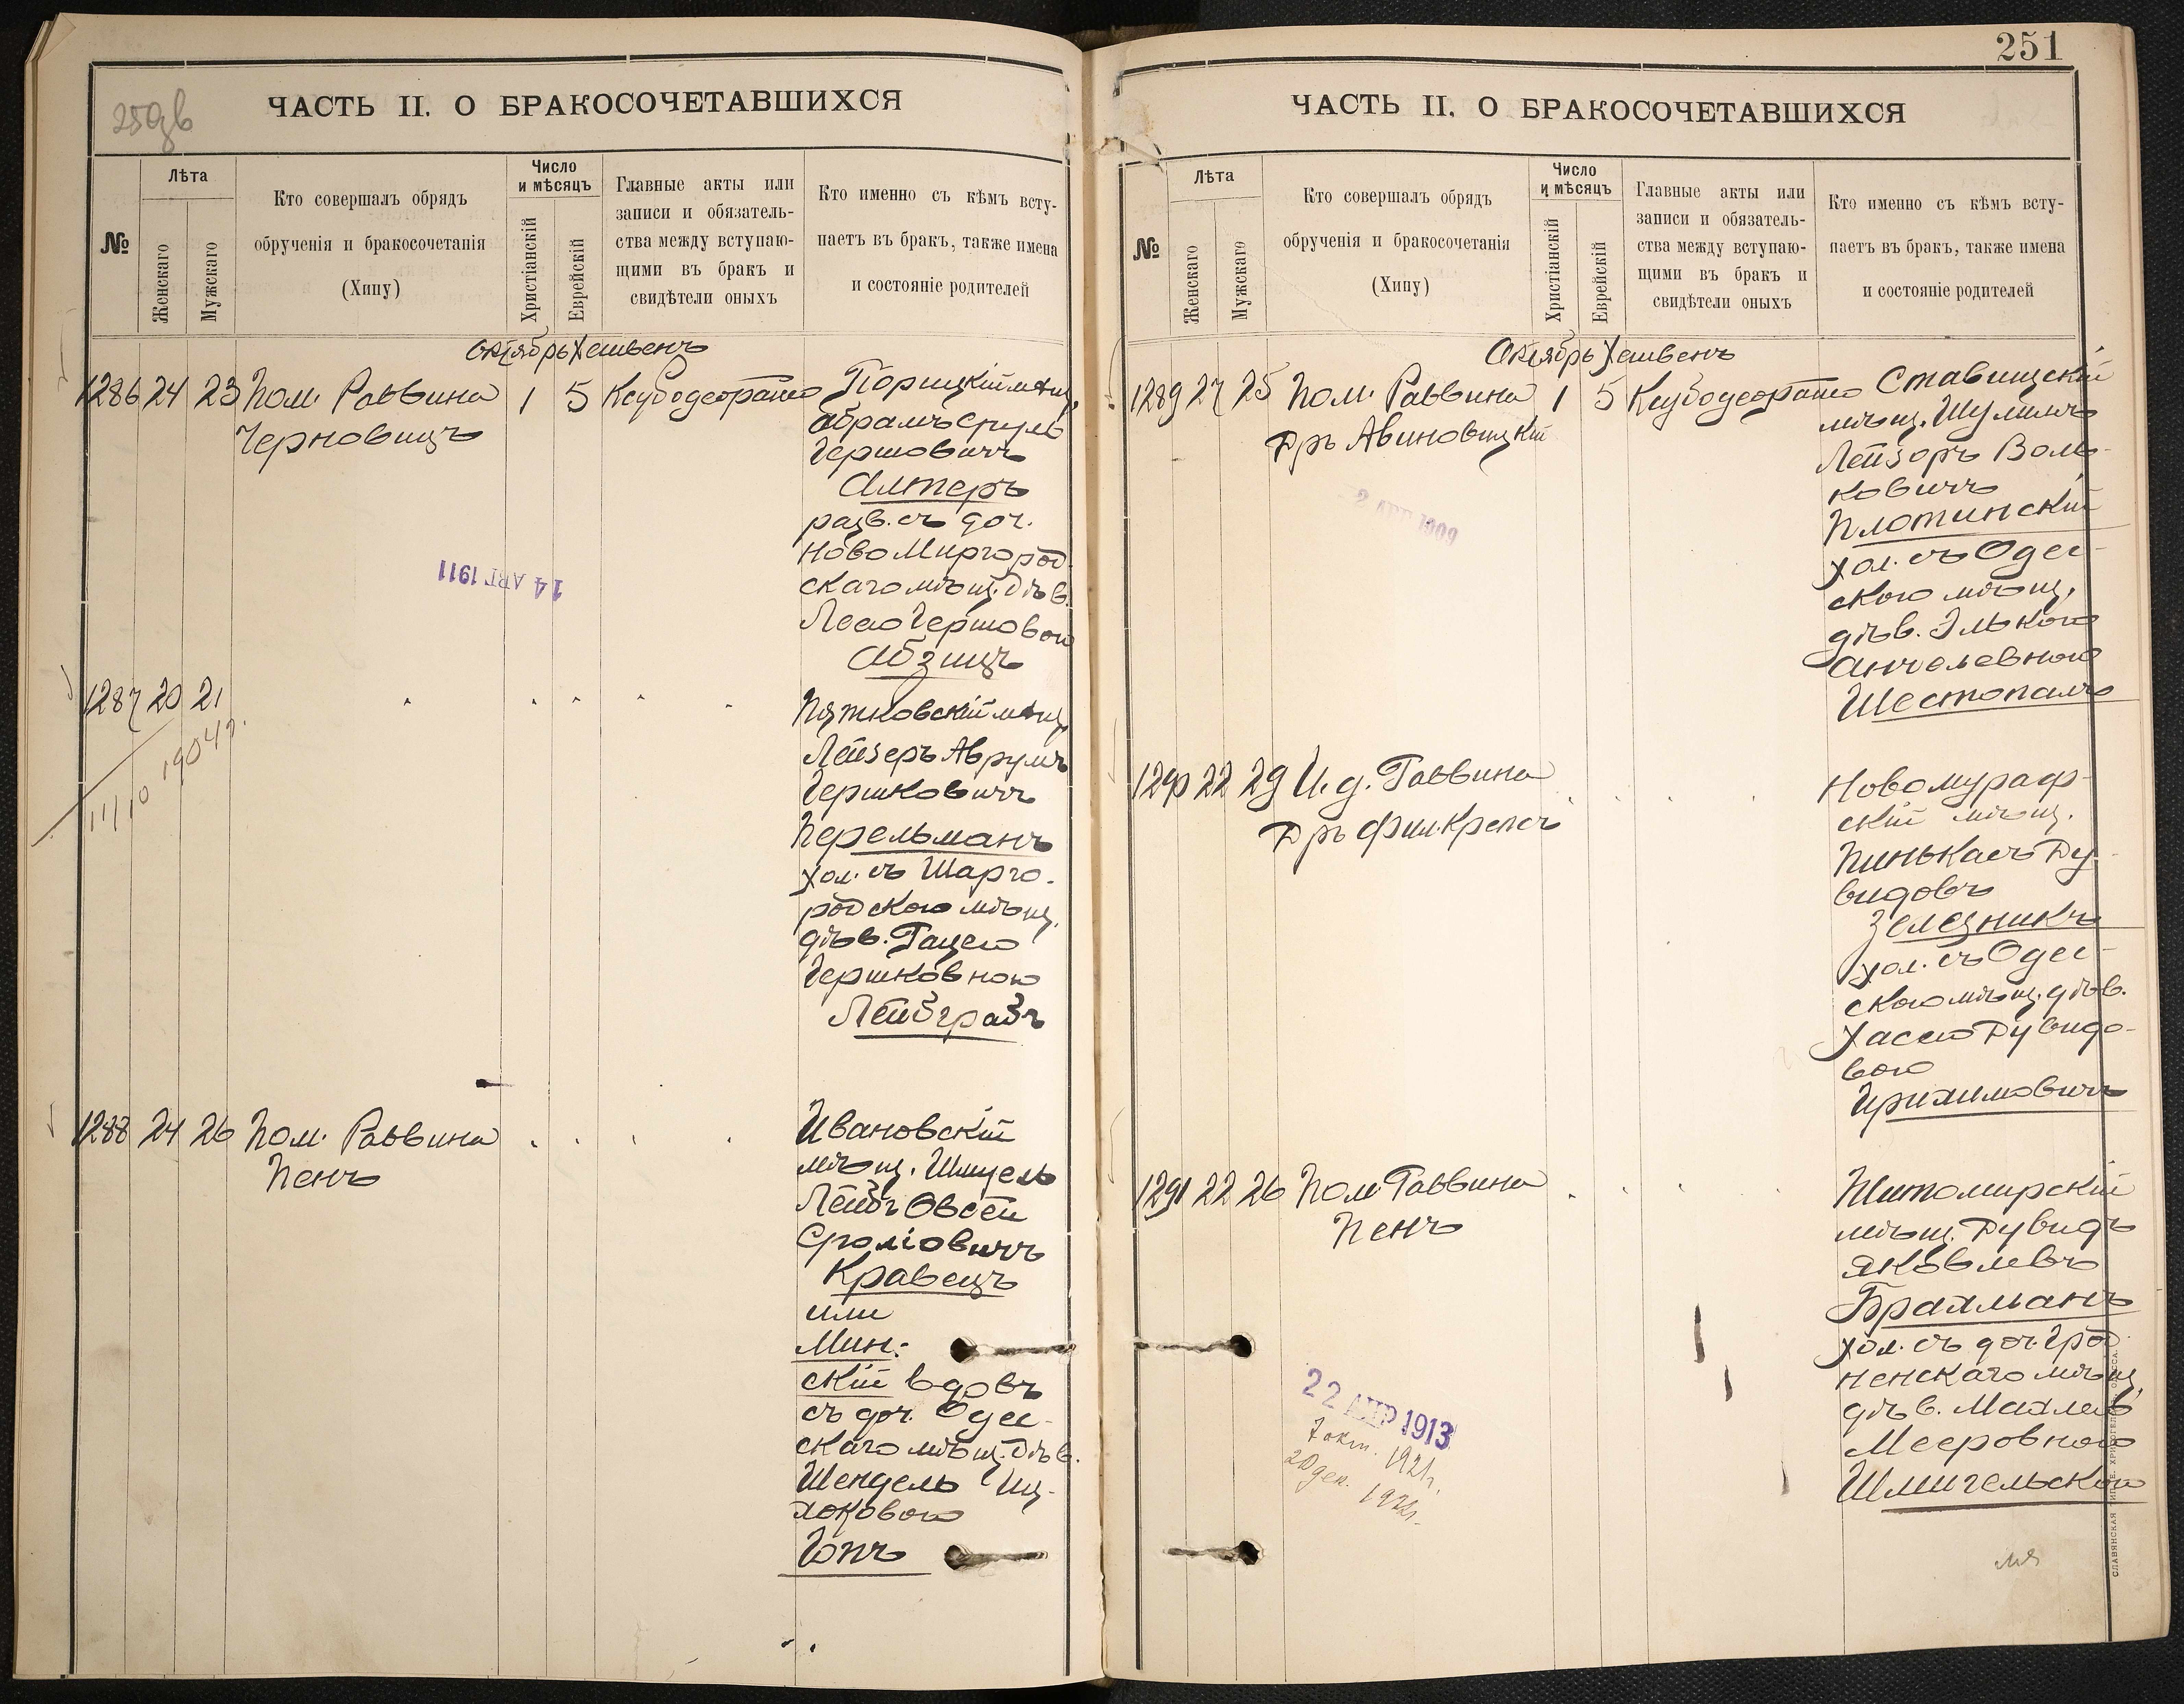 250об
ЧАСТЬ II. О БРАКОСОЧЕТАВШИХСЯ
№
Лѣта
Женскаго
Мужскаго
Кто совершалъ обрядъ
обрученія и бракосочетанія
(Хипу)
Число
и мѣсяцъ
Христіанскій
Еврейскій
Главные акты или
записи и обязатель-
ства между вступаю-
щими въ бракъ и
свидѣтели оныхъ
Кто именно съ кѣмъ всту-
паетъ въ бракъ, также имена
и состояніе родителей
Октябрь Хешвенъ
1286 24 23 Пом. Раввина 1 5
Черновицъ
Порицкій мѣщ.
Абрамъ Сруль
Гершовичъ
Алтеръ
разв. съ доч.
Ново Миргород-
скаго мѣщ. дѣв.
Леею Гершовою
Абзицъ
14 АВГ 1911
1287 20 21
11/10 1904 г.
Пятковскій мѣщ.
Лейзеръ Аврумъ
Гершковичъ
Перельманъ
хол. съ Шарго-
родскою мѣщ.
дѣв.
Гершковною
1288 24 26 Пом. Раввина
Пенъ
Ивановскій
мѣщ. Шмуель
Лейбъ Овсей
Кравецъ
или
Мин-
скій вдовъ
съ доч. Одес-
скаго мѣщ. дѣв.
Шендель Иц-
хоковою
Гопъ
251
ЧАСТЬ II. О БРАКОСОЧЕТАВШИХСЯ
№
Лѣта
Женскаго
Мужскаго
Кто совершалъ обрядъ
обрученія и бракосочетанія
(Хипу)
Число
и мѣсяцъ
Христіанскій
Еврейскій
Главные акты или
записи и обязатель-
ства между вступаю-
щими въ бракъ и
свидѣтели оныхъ
Кто именно съ кѣмъ всту-
паетъ въ бракъ, также имена
и состояніе родителей
Октябрь Хешвенъ
1289 27 25 Пом. Раввина 1 5
Дръ Авиновицкій
Ставищскій
мѣщ. Шулимъ
Лейзоръ Воль-
ковичъ
Плотинскій
хол. съ Одес-
скою мѣщ.
дѣв. Элькою
Анчелевною
Шестопалъ
1290 22 29 И. д. Раввина
Дръ фил. Крепсъ
Новомураф-
скій мѣщ.
Пинькасъ Ду-
видовъ
Зелезникъ
хол. съ Одес-
скою мѣщ. дѣв.
Хасею Дувидо-
вою
1291 22 26 Пом. Раввина
Пенъ
Житомирскій
мѣщ. Дувидъ
Яковлевъ
Брахманъ
хол. съ доч. Грод-
ненскаго мѣщ.
дѣв. Махлею
Мееровною
Шмигельскою
22 АПР 1913
7 окт. 1921 г.
СЛАВЯНСКАЯ ТИП. Е. ХРИСОГЕЛОСЪ, ОДЕССА.